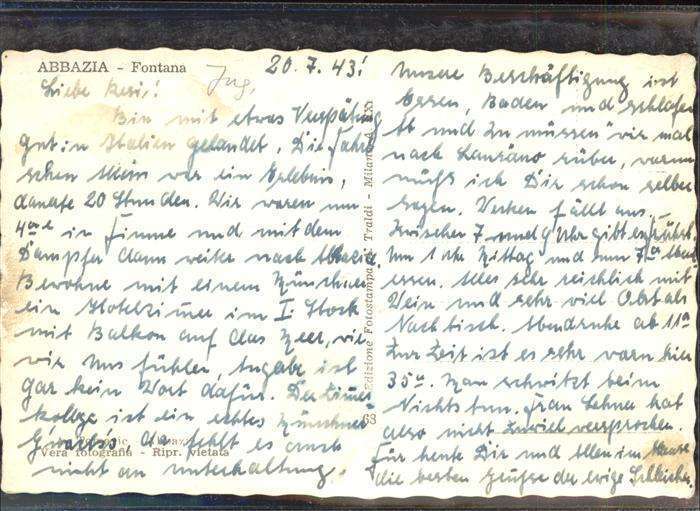 ABBAZIA - Fontana
20.7.43!
Liebe Resi!
Bin mit etwas Verspätung
gut in Italien gelandet. Die Fahrt
war ein Erlebnis,
dauerte 20 Stunden. Wir waren um
4 in Fiume und mit dem
Dampfer dann weiter nach Abbazia.
Bewohne mit einem Münchner
ein Hotelzimmer im I. Stock
mit Balkon auf das Meer, wie
wir uns fühlen, Angabe ist
gar kein Wort dafür. Der Zimmer-
kollege ist ein echtes Münchner
G'wachs. Da fehlt es sonst
nicht an Unterhaltung.
Vera fotografia - Ripr. vietata
Edizione Fotostampa Traldi - Milano
63
Unsere Beschäftigung ist
Essen, Baden und schlafen
ab und zu müssen wir mal
nach rüber, warum
muß ich Dir schon selber
sagen. fällt aus.
Zwischen 7 und 9 Uhr gibt es Frühst.
Um 1 Uhr Mittag und um 7 Abend-
essen. Alles sehr reichlich mit
Wein und sehr viel Obst als
Nachtisch. Abendruhe ab 11
Zur Zeit ist es sehr warm hier
35°. Man schwitzt beim
Nichtstun. Frau Lehner hat
also nicht zuviel versprochen.
Für heute Dir und Allen im Hause
die besten Grüsse der ewige